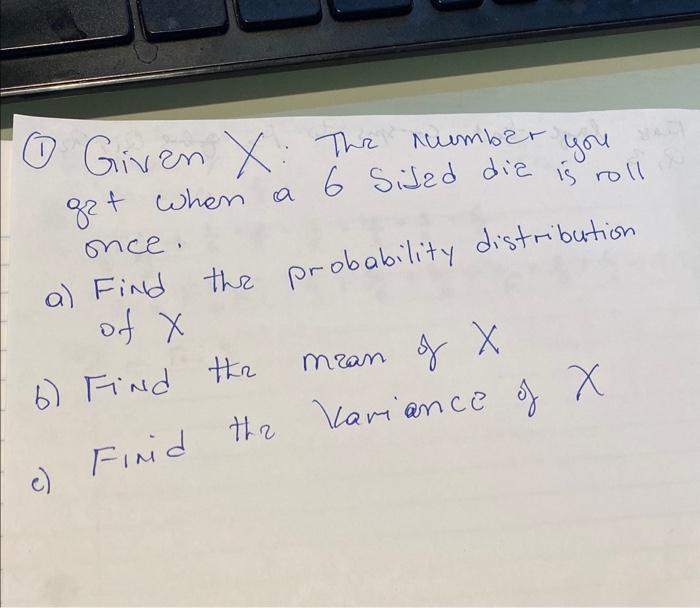 ① Given X: The number you
get when a 6 sided die is roll
once.
a) Find the probability distribution
of X
b) Find the mean of X
c) Find the Variance of X